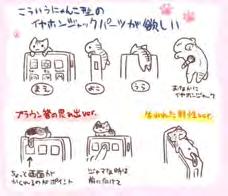 こういうにゃんこ型の
イヤホンジャックパーツが欲しい
まえ
よこ
うら
おなかに
イヤホンジャック
ブラウン管の思い出ver.
失われた野性ver.
ちょっと画面が
かくれるのがポイント
ジャマな時は